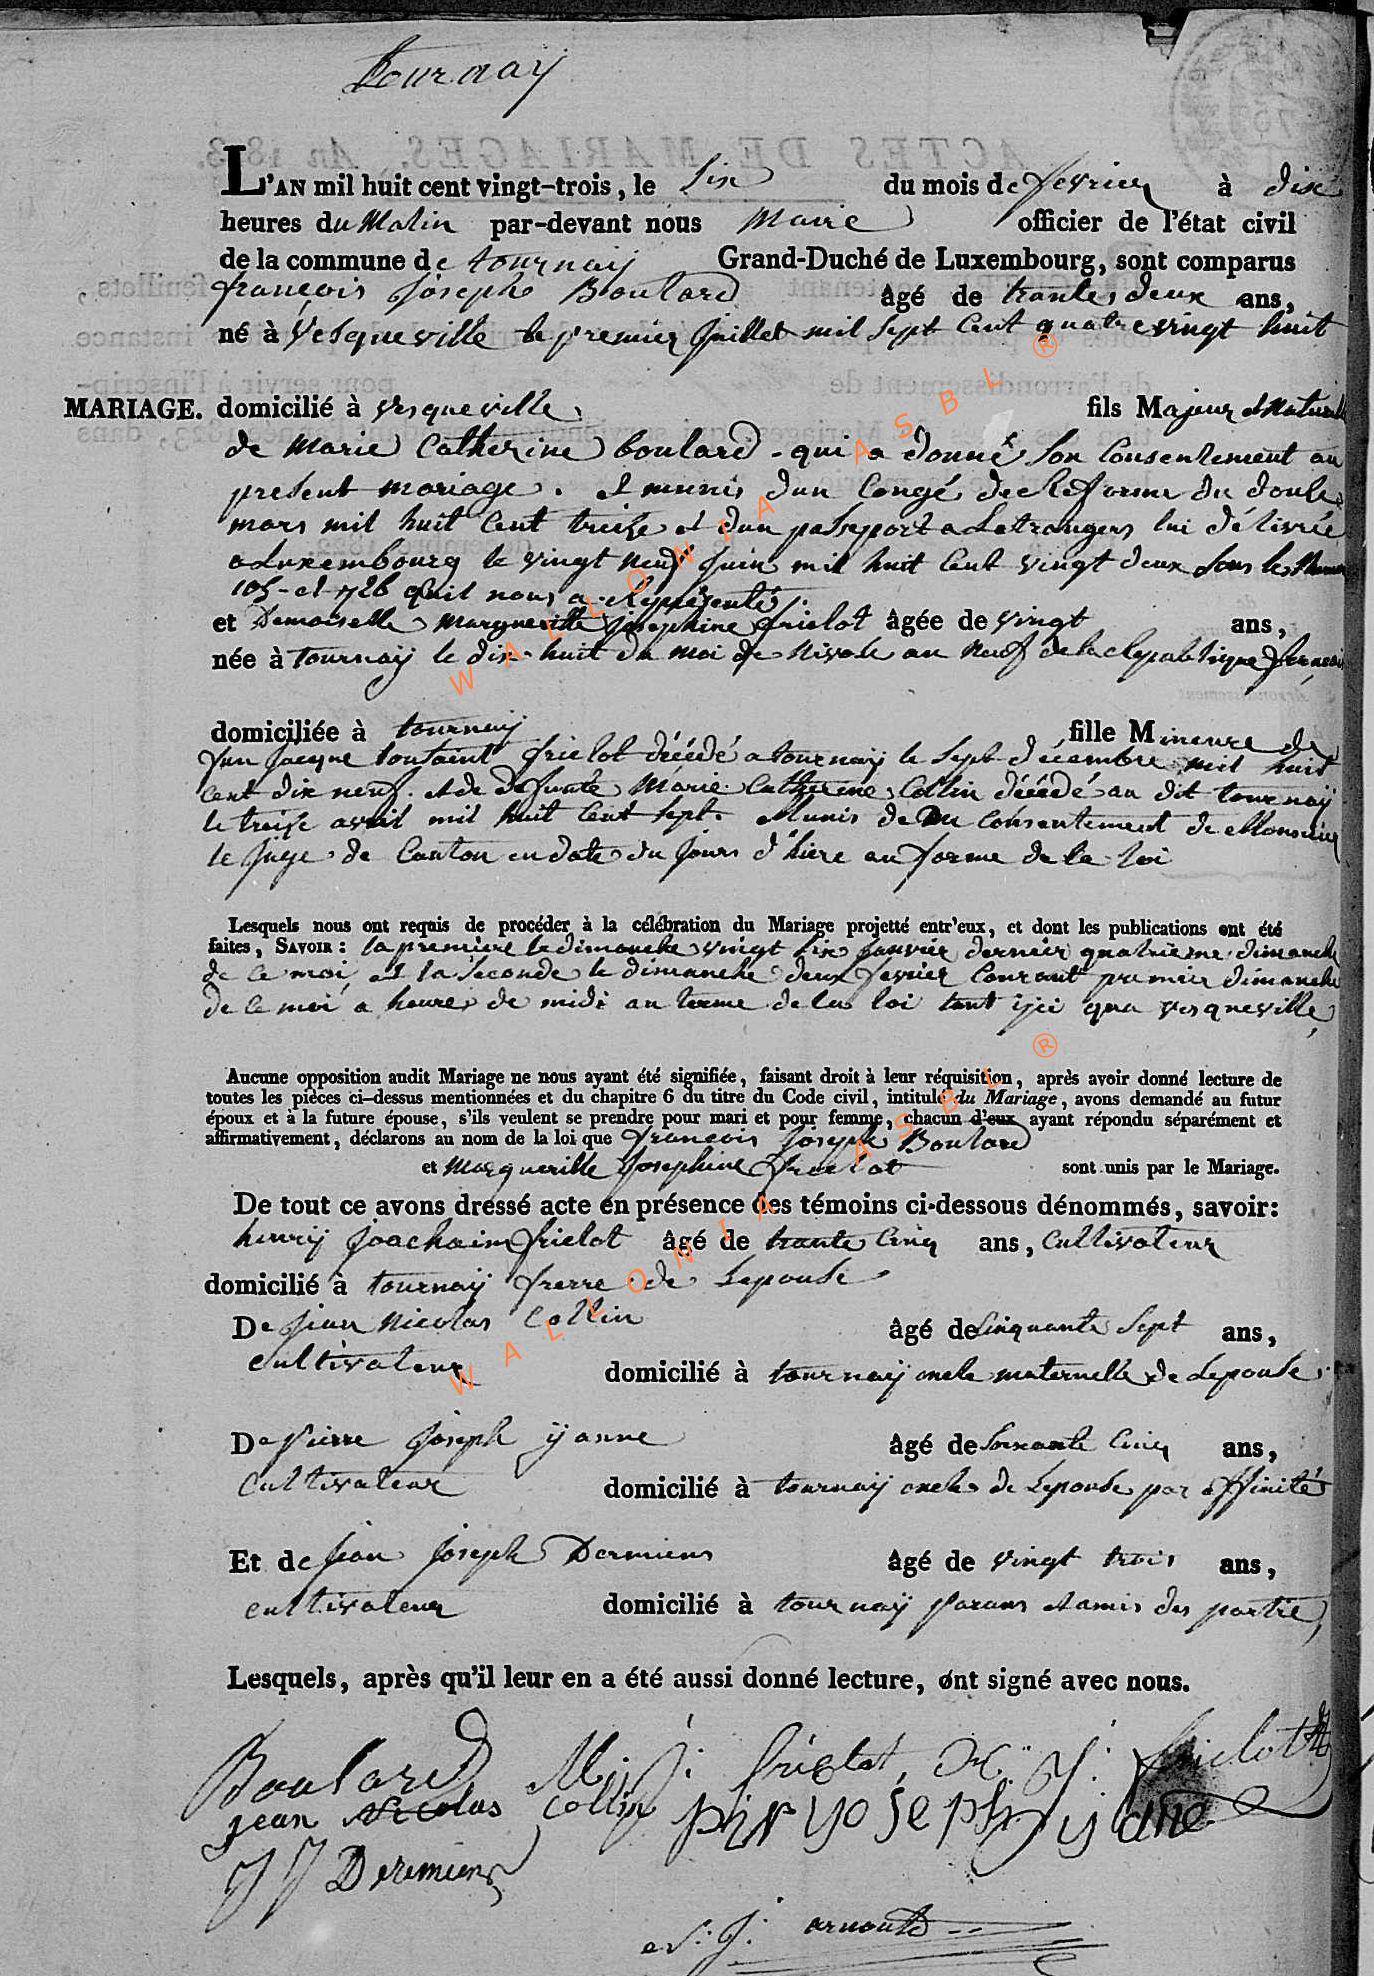 Tournay
L'AN mil huit cent vingt-trois, le Six du mois de fevrier à dix
heures du Matin par-devant nous Maire officier de l'état civil
de la commune de tournay Grand-Duché de Luxembourg, sont comparus
françois Joseph Boulard âgé de trantes deux ans,
né à Vesqueville le premier Juillet mil sept Cent quatre vingt huit
MARIAGE. domicilié à vesqueville fils Majeur et Naturelle
de Marie Catherine boulard qui a donné Son Consentement au
present mariage. et munis dun Congé de Reforme du douze
mars mil huit Cent treize et dun passeport a Letrangers lui délivrée
a Luxembourg le vingt neuf Juin mil huit Cent vingt deux Sous les
105 et 726 quil nous a Représenté.
et Demoiselle Margueritte Josephine frielot âgée de vingt ans,
née à tournay le dix-huit du moi de Nivose an Neuf de la Republique
domiciliée à tournay fille Mineure de
feu Jacque toutaint frielot décédé a tournay le Sept décembre mil huit
Cent dix neuf. et de defunte Marie Catherine Collin décédé au dit tournay
le treize avril mil huit Cent Sept. Munis de Consentement de Monsieur
le Juge de Canton en date du Jours d'hiere au forme de la loi
Lesquels nous ont requis de procéder à la célébration du Mariage projetté entr'eux, et dont les publications ont été
faites, SAVOIR : la premiere le dimanche vingt Six Janvier dernier quatrieme dimanche
de Ce moi, et la Seconde le dimanche deux fevrier Courant premier dimanche
de Ce moi a heure de midi au terme de la loi tant ici qua vesqueville,
Aucune opposition audit Mariage ne nous ayant été signifiée, faisant droit à leur réquisition, après avoir donné lecture de
toutes les pièces ci-dessus mentionnées et du chapitre 6 du titre du Code civil, intitulé du Mariage, avons demandé au futur
époux et à la future épouse, s'ils veulent se prendre pour mari et pour femme, chacun d'eux ayant répondu séparément et
affirmativement, déclarons au nom de la loi que françois Joseph Boulard
et Margueritte Josephine frielot sont unis par le Mariage.
De tout ce avons dressé acte en présence des témoins ci-dessous dénommés, savoir:
henry Joachaim frielot âgé de trante Cinq ans, Cultivateur
domicilié à tournay frerre de Lepouse
De Jean Nicolas Collin âgé de Cinquante Sept ans,
Cultivateur domicilié à tournay oncle maternelle de Lepouse
De Pierre Joseph yanne âgé de Soixante Cinq ans,
Cultivateur domicilié à tournay oncle de Lepouse par affinité
Et de Jean Joseph Dermiens âgé de vingt trois ans,
cultivateur domicilié à tournay parans et amis des partie,
Lesquels, après qu'il leur en a été aussi donné lecture, ont signé avec nous.
Boulard M: J: frielot H: J: frielot
jean Nicolas Collin pier yoseph yane
J J Deremiens
J: arnould
WALLONIA ASBL ®
WALLONIA ASBL ®